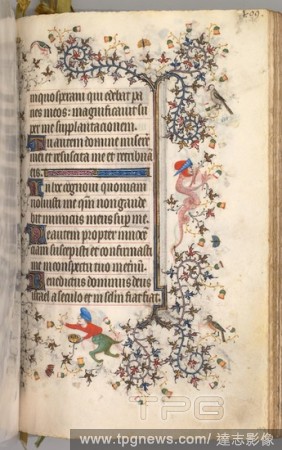 in quo speravi qui edebat pa
nes meos: magnificavit su
per me supplantationem.
Tu autem domine misere
mei et resuscita me et retribua
eis.
In hoc cognovi quoniam
voluisti me qm̄ non gaude
bit inimicus meus sup me.
Me autem propter innocē
ciam suscepisti et confirmasti
me in conspectu tuo in eternū.
Benedictus dominus deus
israel a seculo et in seculū fiat fiat.
TPG
www.tpgnews.com/ 達志影像